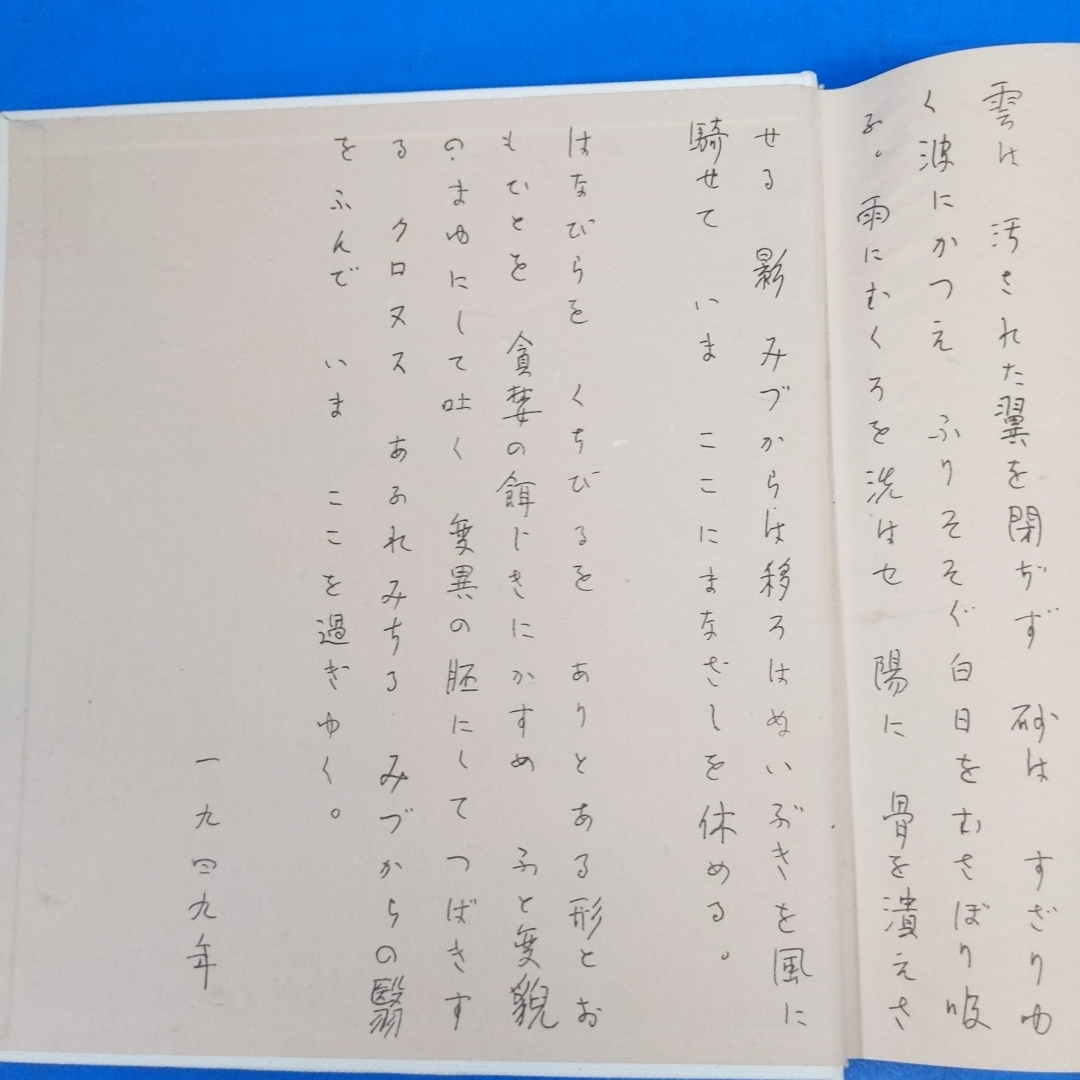 雲は 汚された翼を閉ぢず 砂は すざりゆ
く波にかつえ ふりそそぐ白日をむさぼり吸
ふ。雨にむくろを洗はせ 陽に 骨を潰えさ
せる 影 みづからは移ろはぬいぶきを風に
騎せて いま ここにまなざしを休める。
はなびらを くちびるを ありとある形とお
もひとを 貪婪の餌じきにかすめ ふと変貌
のまゆにして吐く 変異の胚にしてつばきす
る クロヌス あふれみちる みづからの翳
をふんで いま ここを過ぎゆく。
一九四九年